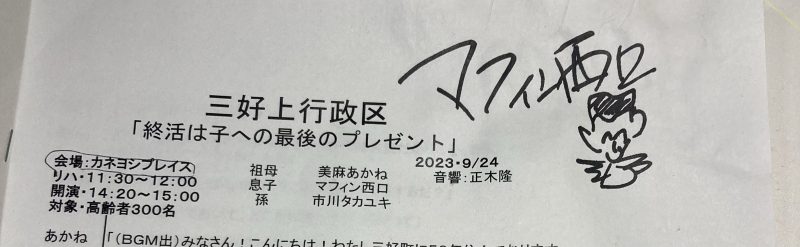 マフィン西口
三好上行政区
「終活は子への最後のプレゼント」
会場:カネヨシプレイス
リハ・11:30~12:00
開演・14:20~15:00
対象・高齢者300名
祖母 美麻あかね
息子 マフィン西口
孫 市川タカユキ
2023・9/24
音響:正木隆
あかね 「(BGM出)みなさん!こんにちは!わたし三好町に